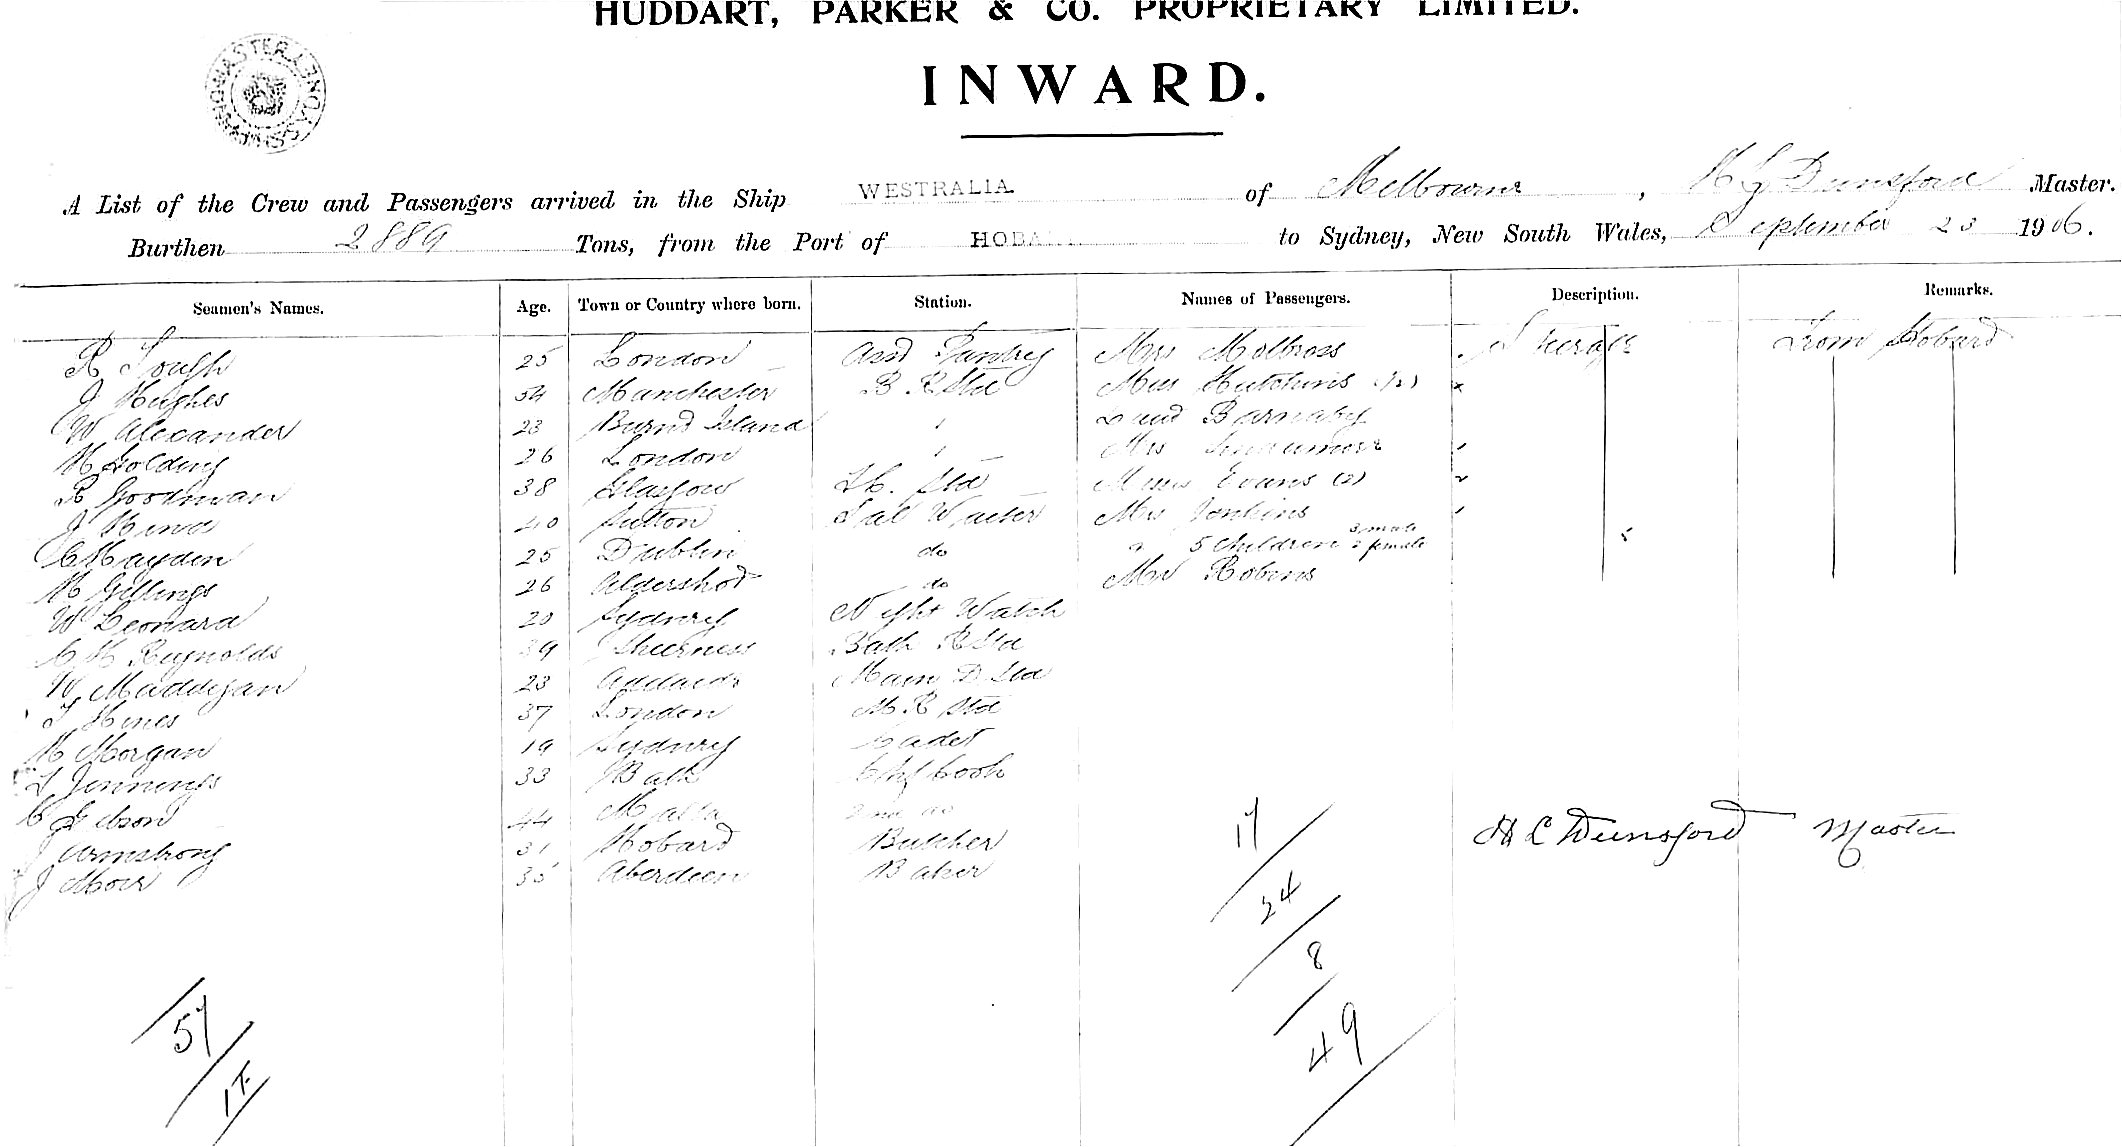 HUDDART, PARKER & CO. PROPRIETARY LIMITED.
INWARD.
A List of the Crew and Passengers arrived in the Ship WESTRALIA of Melbourne, Dunsford Master.
Burthen 2889 Tons, from the Port of HOBA to Sydney, New South Wales, September 23 1906.
Seamen's Names. Age. Town or Country where born. Station. Names of Passengers. Description. Remarks.
R 25 London Asst Pantry Mrs Molbross Steerage From Hobart
J Hughes 54 Manchester B. R Std Miss Hutchins (1/2)
W Alexander 23 Burnt Island Barnaby
H Golding 26 London Mrs
R Goodman 38 Glasgow Std Evans (2)
J 40 Sutton Sal Waiter Mrs Jenkins
C Hayden 25 Dublin do 5 children 3 male 2 female 5
H Gillings 26 Aldershot do Robins
W Leonard 20 Sydney Night Watch
C H Reynolds 39 Sheerness Bath R Std
W. Maddigan 23 Adelaide Std
Hines 37 London M. R Std
H Morgan 19 Sydney Cadet
Jennings 33 Bath Chf Cook
C Gibson 44 Malta 2nd do
J Armstrong 31 Hobart Butcher
J Moir 35 Aberdeen Baker
17
24
8
49
H L Dunsford Master
57